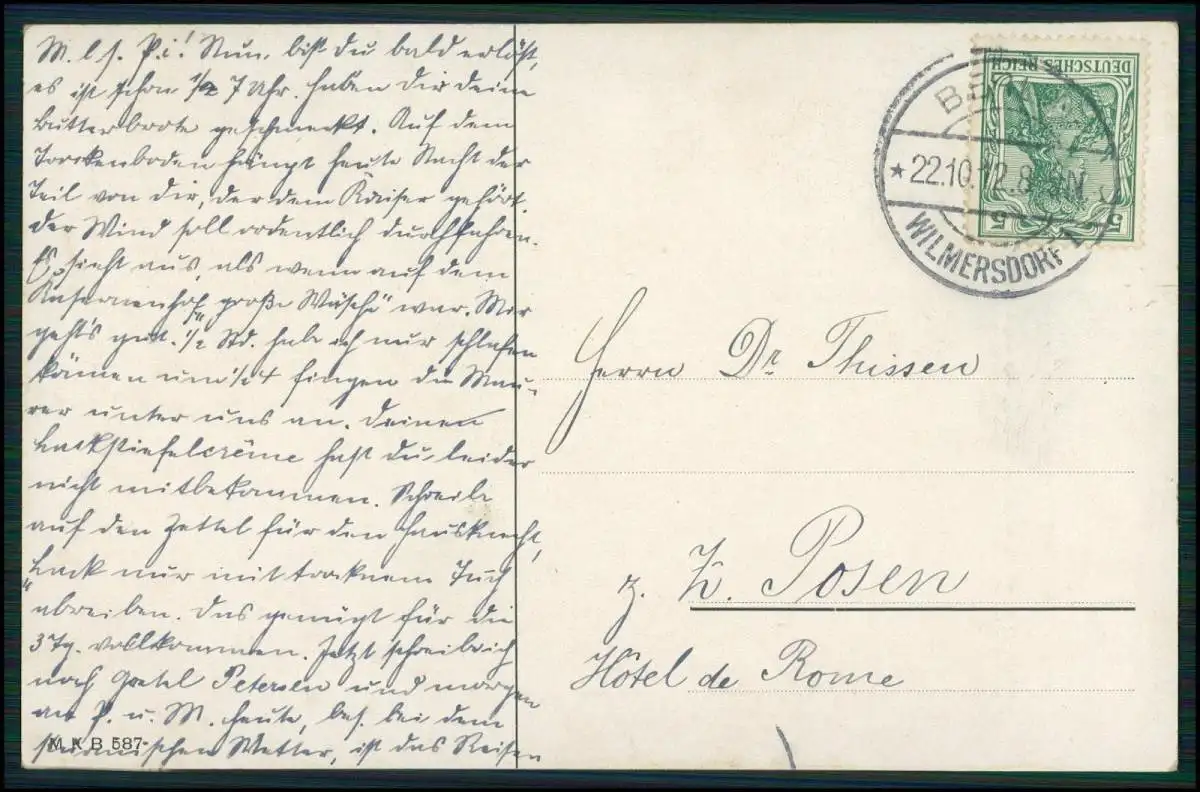 M. l. s. P.i! Nun bist du bald erlöst,
es ist schon 1/2 7 Uhr. haben dir deine
Butterbrote geschmeckt. Auf dem
Trockenboden hängt heute Nacht der
Teil von dir, der dem Kaiser gehört.
der Wind soll ordentlich durchfahren.
Es sieht aus, als wenn auf dem
Kasernenhof „große Wäsche“ war. Mir
geht's gut. 1/2 Std. habe ich nur schlafen
können um 1/2 4 fingen die Mau-
rer unter uns an. deinen
Lackstiefelcrème hast du leider
nicht mitbekommen. Schreibe
auf den Zettel für den Hausknecht,
„Lack nur mit trocknem Tuch
abreiben. Das genügt für die
3 Tg. vollkommen. Jetzt schreibe ich
noch Gretel Petersen und morgen
an P. u. M. heute, bes. bei dem
stürmischen Wetter, ist das Reisen
M K B 587
DEUTSCHES REICH
5 5
BERLIN
* 22.10.12. 8-9N
WILMERSDORF 1
Herrn Dr Thissen
z. Z. Posen
Hôtel de Rome